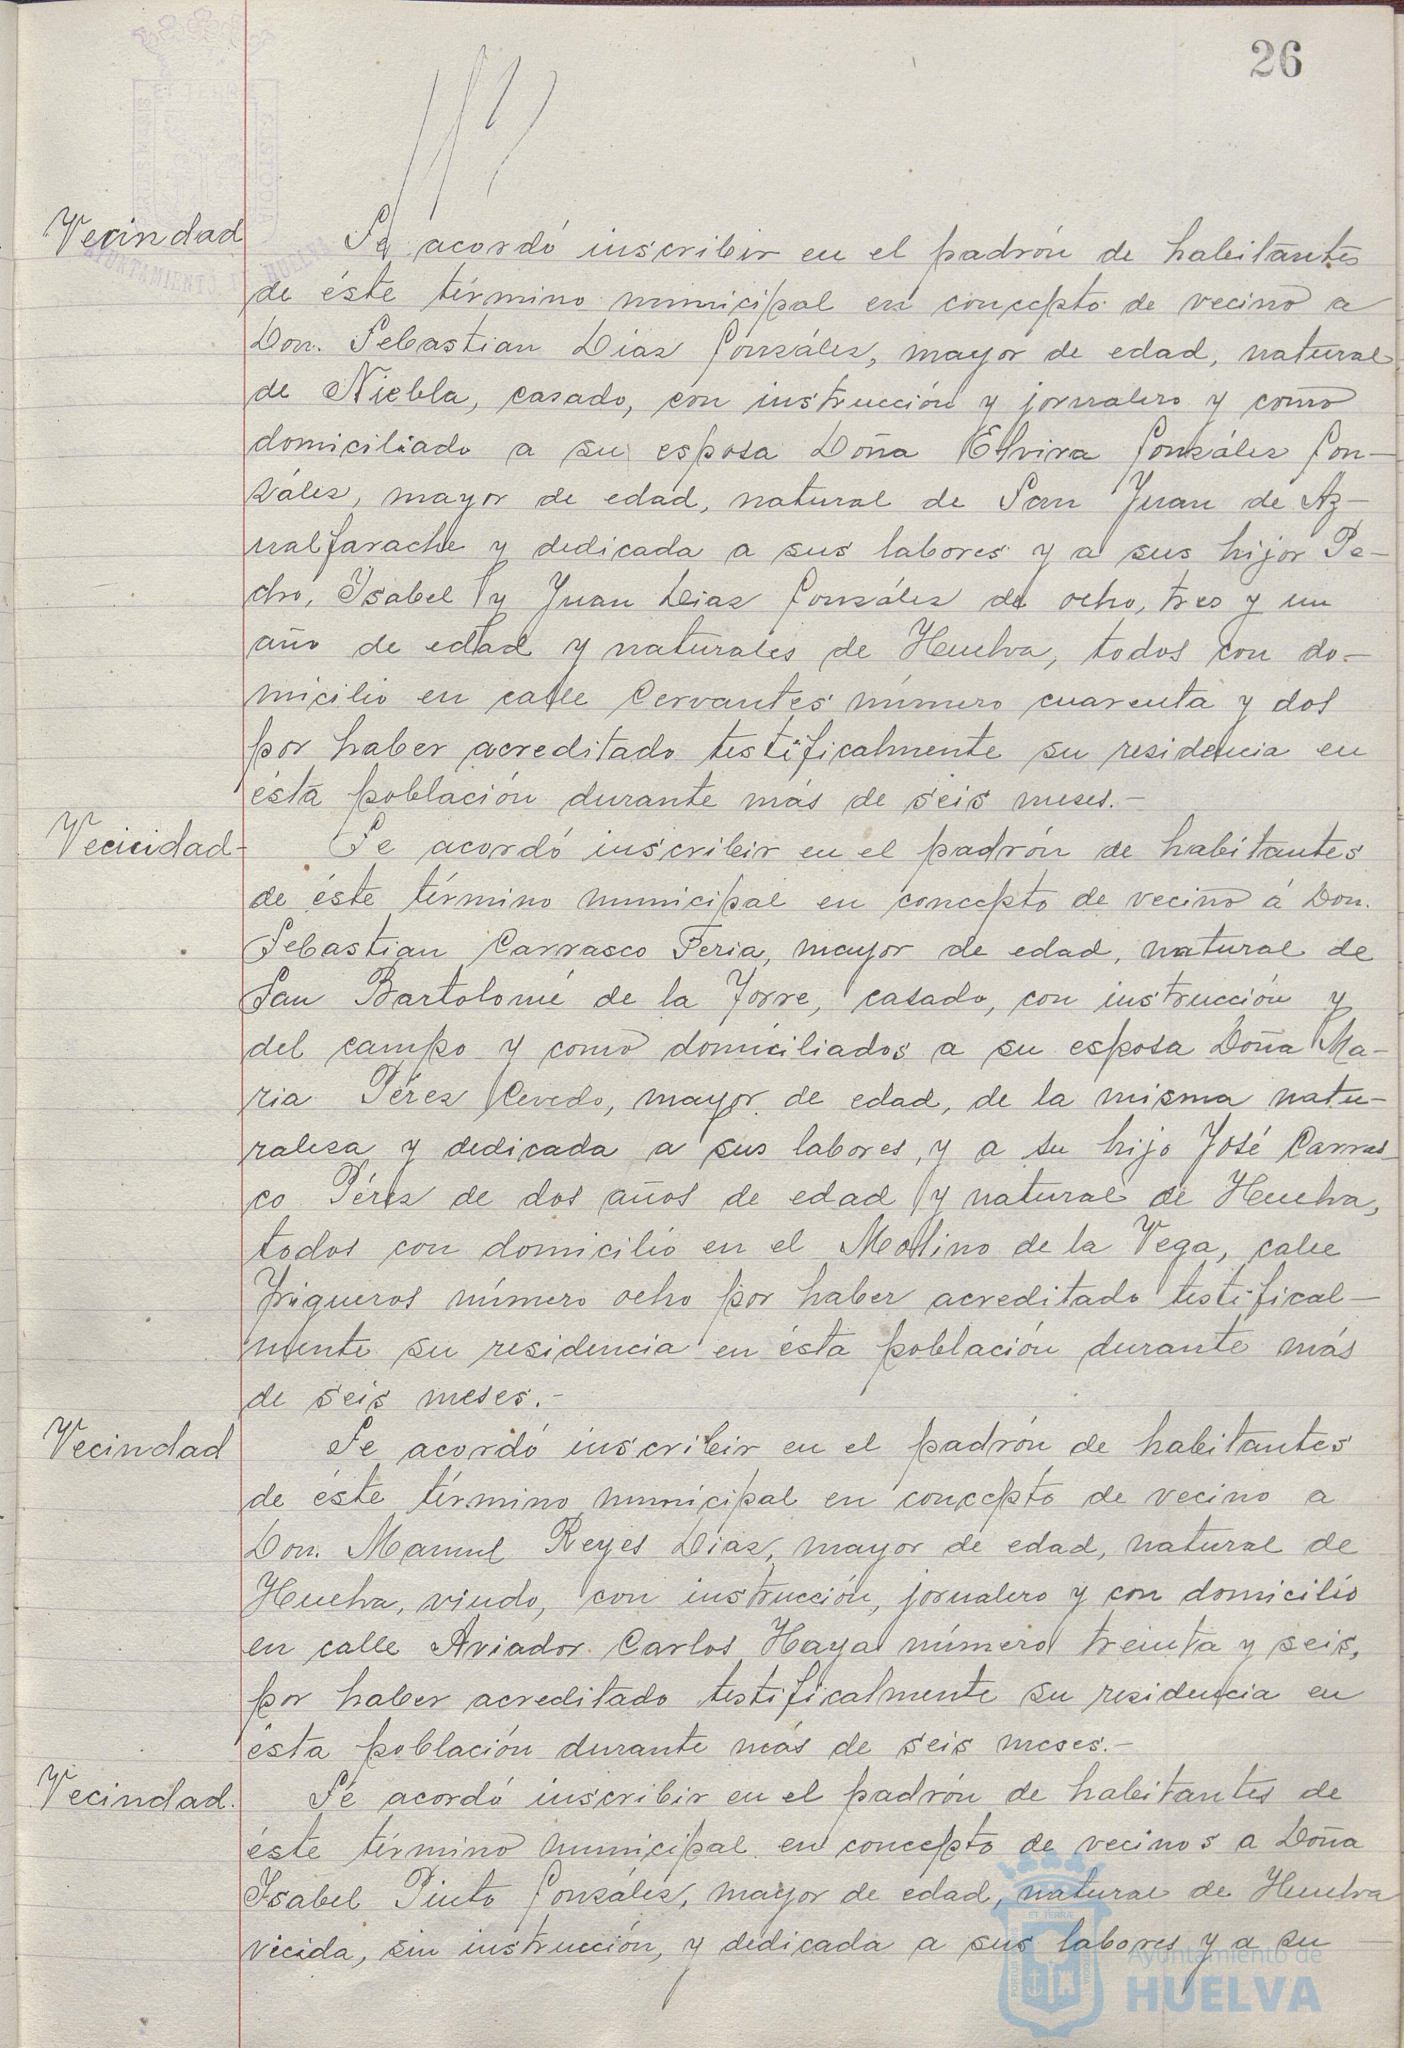 26
Vecindad
Se acordó inscribir en el padrón de habitantes
de éste término municipal en concepto de vecino a
Don. Sebastian Diaz González, mayor de edad, natural
de Niebla, casado, con instrucción y jornalero y como
domiciliado a su esposa Doña Elvira González Gon-
zález, mayor de edad, natural de San Juan de Az-
nalfarache y dedicada a sus labores y a sus hijos Pe-
dro, Isabel y Juan Diaz González de ocho, tres y un
año de edad y naturales de Huelva, todos con do-
micilio en calle Cervantes número cuarenta y dos
por haber acreditado testificalmente su residencia en
ésta población durante más de seis meses.-
Vecindad-
Se acordó inscribir en el padrón de habitantes
de éste término municipal en concepto de vecino á Don.
Sebastian Carrasco Feria, mayor de edad, natural de
San Bartolomé de la Torre, casado, con instrucción y
del campo y como domiciliados a su esposa Doña Ma-
ria Pérez mayor de edad, de la misma natu-
raleza y dedicada a sus labores, y a su hijo José Carras-
co Pérez de dos años de edad y natural de Huelva,
todos con domicilio en el Molino de la Vega, calle
Trigueros número ocho por haber acreditado testifical-
mente su residencia en ésta población durante más
de seis meses.-
Vecindad
Se acordó inscribir en el padrón de habitantes
de éste término municipal en concepto de vecino a
Don. Manuel Reyes Diaz, mayor de edad, natural de
Huelva, viudo, con instrucción, jornalero y con domicilio
en calle Aviador Carlos Haya número treinta y seis,
por haber acreditado testificalmente su residencia en
ésta población durante más de seis meses.-
Vecindad.
Sé acordó inscribir en el padrón de habitantes de
éste término municipal en concepto de vecinos a Doña
Isabel Pinto González, mayor de edad, natural de Huelva
sin instrucción, y dedicada a sus labores y a su
Ayuntamiento de
HUELVA